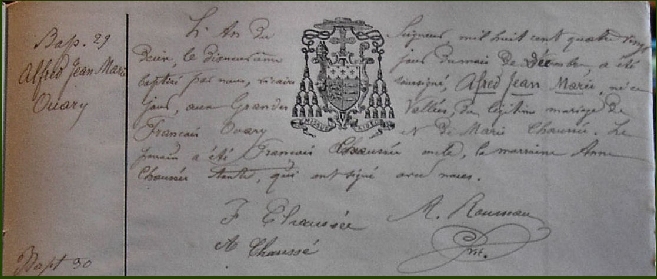 Bap. 29
Alfred Jean Marie
Ouary
L'An du Seigneur mil huit cent quatre vingt
jour du mois de Décembre a été
baptisé par nous, vicaire soussigné, Alfred Jean Marie, né ce
jour, aux Grandes Vallées, du légitime mariage de
François Ouary et de Marie Chaussée. Le
parrain a été François Chaussée oncle, la marraine Anne
Chaussée tante, qui ont signé avec nous.
F Chaussée A. Rousseau
A Chaussé
Bapt 30